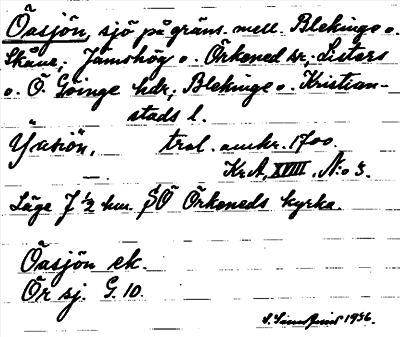 Öasjön, sjö på gräns. mell. Blekinge o.
Skåne; Jämshög o. Örkened sr; Listers
o. Ö. Göinge hdr; Blekinge o. Kristian-
stads l.
trol. omkr. 1700.
Kr.A, XVIII, N:o 3.
Läge 7 1/2 km. SÖ Örkeneds kyrka.
Öasjön ek.
Ör sj. G. 10.
1936.